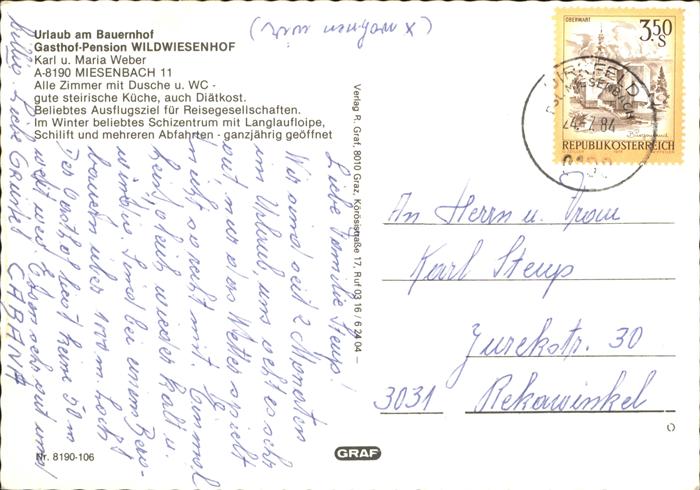 Urlaub am Bauernhof
Gasthof-Pension WILDWIESENHOF
Karl u. Maria Weber
A-8190 MIESENBACH 11
Alle Zimmer mit Dusche u. WC -
gute steirische Küche, auch Diätkost.
Beliebtes Ausflugsziel für Reisegesellschaften.
Im Winter beliebtes Schizentrum mit Langlaufloipe,
Schilift und mehreren Abfahrten - ganzjährig geöffnet
(x wohnen wir)
Liebe Familie Steup!
Wir sind seit 2 Monaten
im Urlaub, uns geht es sehr
gut nur das Wetter spielt
nicht so recht mit. Einmal
heiß, gleich wieder kalt u.
windig. Sind bei einem Berg-
bauern über 1000 m. hoch
Der Gasthof liegt keine 50 m
weit weg Essen sehr gut und
billig Liebe Grüße
CABANA
Nr. 8190-106
Verlag R. Graf, 8010 Graz, Körösistraße 17, Ruf 03 16 / 6 24 04 –
GRAF
OBERWART
3,50 S
Burgenland
REPUBLIK ÖSTERREICH
BIRKFELD
MIESENBACH
84
8190
An Herrn u. Frau
Karl Steup
Jurekstr. 30
3031 Rekawinkel